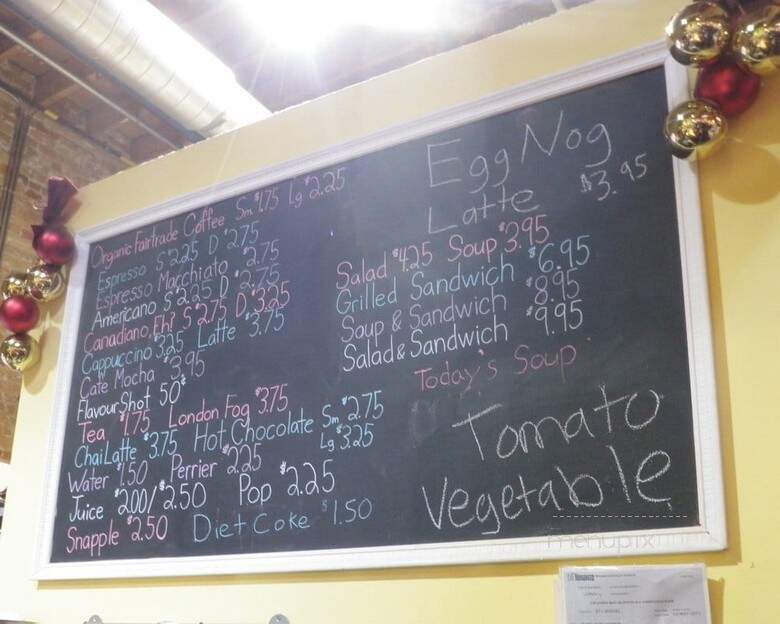 Organic Fairtrade Coffee Sm $1.75 Lg $2.25
Espresso S $2.25 D $2.75
Espresso Macchiato $2.75
Americano S $2.25 D $2.75
Canadiano, Eh? S $2.75 D $3.25
Cappuccino 3.25 Latte $3.75
Cafe Mocha $3.95
Flavour Shot 50¢
Tea $1.75 London Fog $3.75
Chai Latte $3.75 Hot Chocolate Sm $2.75
Lg $3.25
Water $1.50 Perrier $2.25
Juice $2.00/$2.50 Pop $2.25
Snapple $2.50 Diet Coke $1.50
Egg Nog
Latte $3.95
Salad $4.25 Soup $3.95
Grilled Sandwich $6.95
Soup & Sandwich $8.95
Salad & Sandwich $9.95
Today's Soup
Tomato
Vegetable
menupix